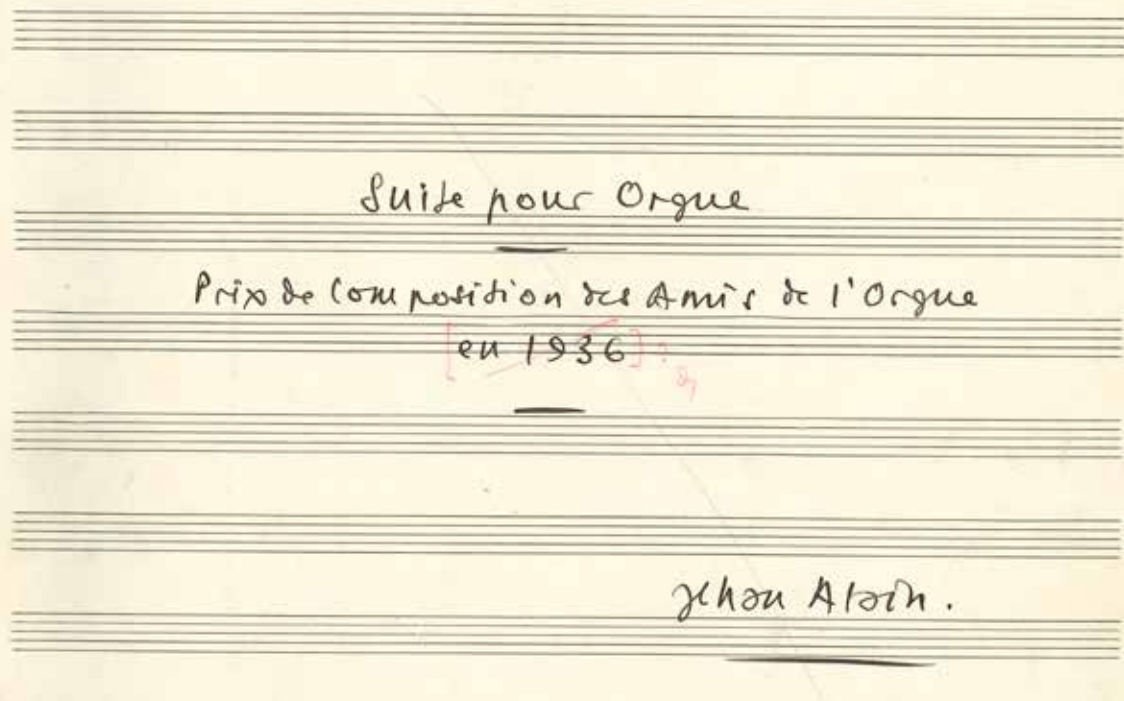 Suite pour Orgue
Prix de Composition des Amis de l'Orgue
[en 1936] ?
Jehan Alain.